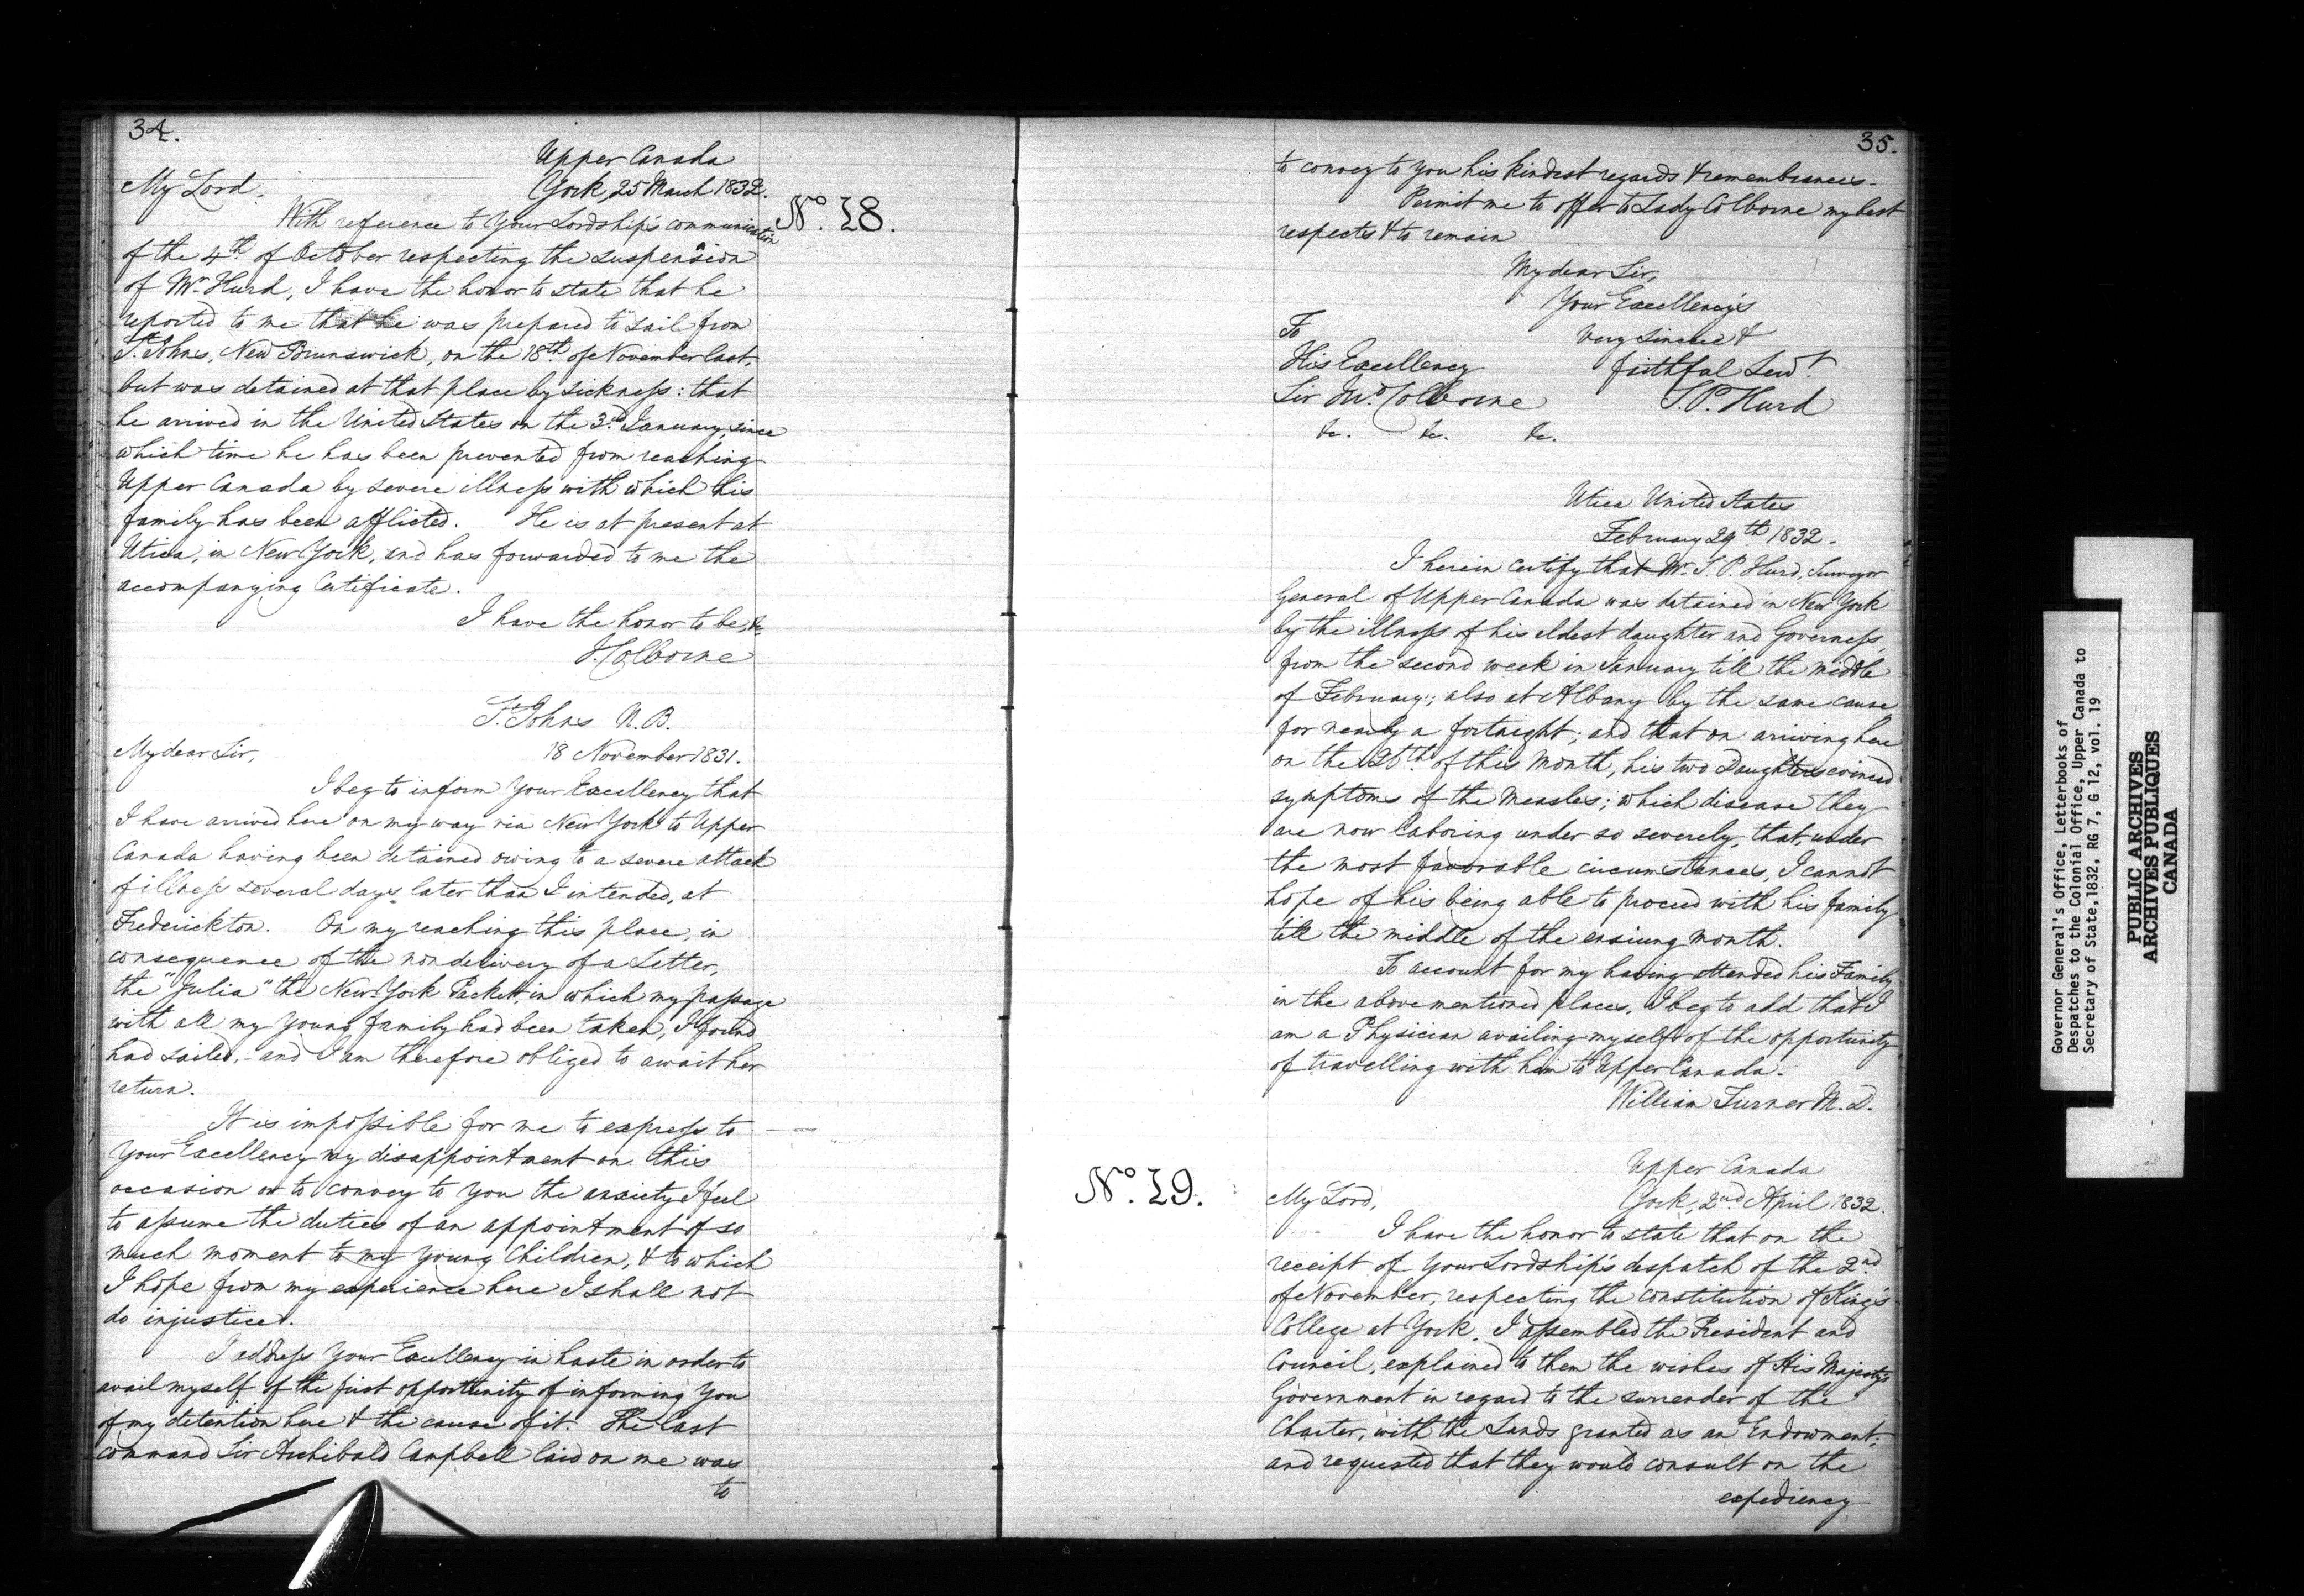 34.
Upper Canada
My Lord, York, 25 March 1832.
No. 18.
With reference to Your Lordship's communication
of the 4th of October respecting the suspension
of Mr Hurd, I have the honor to state that he
reported to me that he was prepared to sail from
St Johns, New Brunswick, on the 18th of November last,
but was detained at that place by sickness: that
he arrived in the United States on the 3rd January, since
which time he has been prevented from reaching
Upper Canada by severe illness with which his
family has been afflicted. He is at present at
Utica, in New York, and has forwarded to me the
accompanying Certificate.
I have the honor to be, &c.
J. Colborne
St Johns N.B.
My dear Sir, 18 November 1831.
I beg to inform Your Excellency that
I have arrived here on my way via New York to Upper
Canada having been detained owing to a severe attack
of illness several days later than I intended, at
Frederickton. On my reaching this place, in
consequence of the non delivery of a Letter,
the "Julia" the New York Packet, in which my passage
with all my young family had been taken, I found
had sailed, and I am therefore obliged to await her
return.
It is impossible for me to express to
Your Excellency my disappointment on this
occasion or to convey to you the anxiety I feel
to assume the duties of an appointment of so
much moment to my young Children, & to which
I hope from my experience here I shall not
do injustice.
I address Your Excellency in haste in order to
avail myself of the first opportunity of informing You
of my detention here & the cause of it. The last
command Sir Archibald Campbell laid on me was
to
35.
to convey to you his kindest regards & remembrances.
Permit me to offer to Lady Colborne my best
respects & to remain
My dear Sir,
Your Excellency's
To very sincere &
His Excellency faithful Servt
Sir Jno. Colborne S.P. Hurd
&c. &c. &c.
Utica United States
February 29th 1832.
I herein certify that Mr. S. P. Hurd, Surveyor
General of Upper Canada was detained in New York
by the illness of his eldest daughter and Governess,
from the second week in January till the middle
of February; also at Albany by the same cause
for nearly a fortnight; and that on arriving here
on the 26th of this Month, his two Daughters evinced
symptoms of the Measles; which disease they
are now laboring under so severely, that, under
the most favorable circumstances, I cannot
hope of his being able to proceed with his family
till the middle of the ensuing month.
To account for my having attended his Family
in the above mentioned places, I beg to add that I
am a Physician availing myself of the opportunity
of travelling with him to Upper Canada.
William Turner M.D.
Upper Canada
No. 19.
My Lord, York, 2nd April 1832.
I have the honor to state that on the
receipt of Your Lordship's despatch of the 2nd
of November, respecting the constitution of King's
College at York, I assembled the President and
Council, explained to them the wishes of His Majesty's
Government in regard to the surrender of the
Charter, with the Lands granted as an Endowment;
and requested that they would consult on the
expediency
Governor General's Office, Letterbooks of
Despatches to the Colonial Office, Upper Canada to
Secretary of State,1832, RG 7, G 12, vol. 19
PUBLIC ARCHIVES
ARCHIVES PUBLIQUES
CANADA